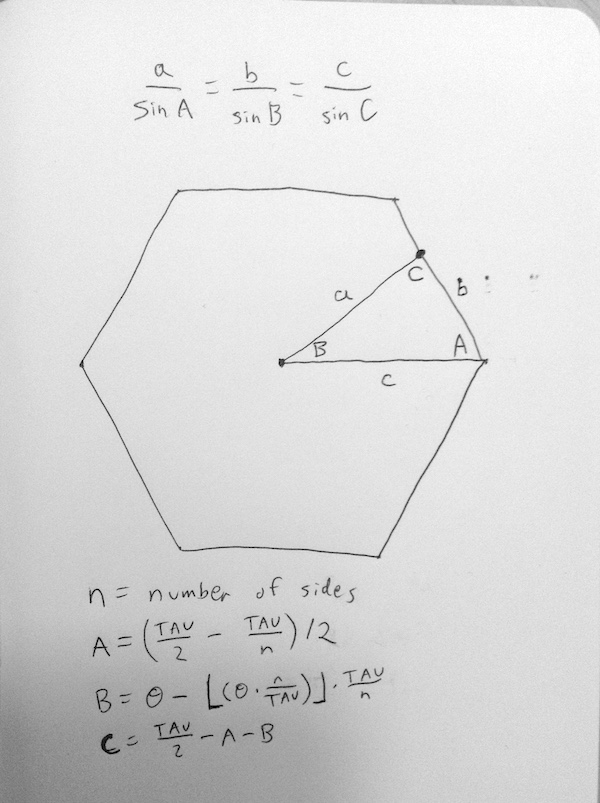 a/sin A = b/sin B = c/sin C
C
b
a
B
A
c
n = number of sides
A = (TAU/2 - TAU/n)/2
B = θ - ⌊(θ · n/TAU)⌋ · TAU/n
C = TAU/2 - A - B